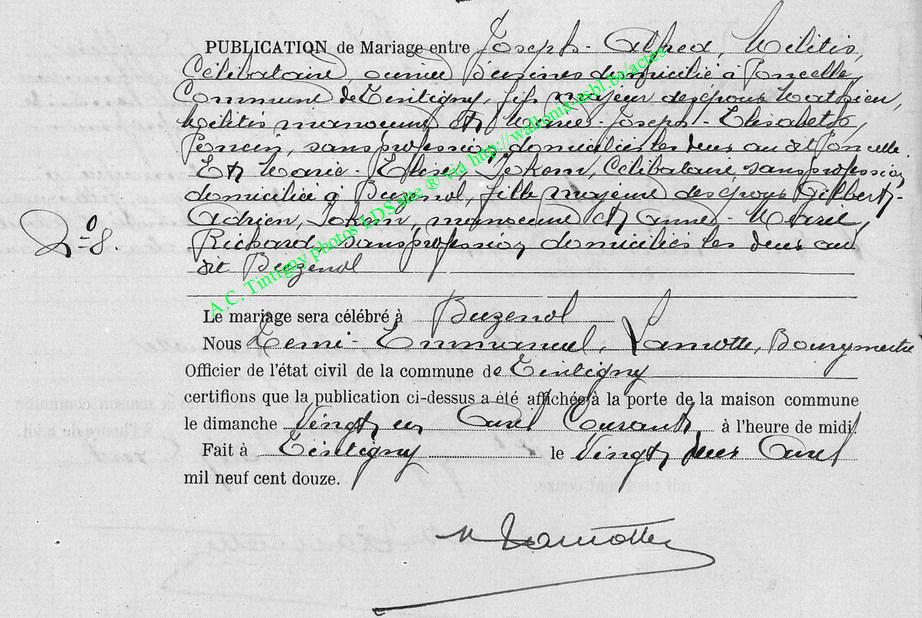 PUBLICATION de Mariage entre Joseph-Alfred, Mélitis,
Célibataire, ouvrier Dusines domicilié à Poncelle,
Commune de Tintigny, fils majeur des époux Mathieu,
Mélitis manoeuvre Et Marie-Joseph-Elisabeth,
Poncin, sans profession domiciliés les deux au dit Poncelle
Et Marie- Célibataire, sans profession,
domiciliée à Buzenol, fille majeure des époux Gilbert-
Adrien, manoeuvre Et Anne-
Richard, sans profession, domiciliés les deux au
dit Buzenol
2-8
Le mariage sera célébré à Buzenol
Nous Remi-Emmanuel, Lamotte, Bourgmestre
Officier de l'état civil de la commune de Tintigny
certifions que la publication ci-dessus a été affichée à la porte de la maison commune
le dimanche Vingt un Avril Courant à l'heure de midi.
Fait à Tintigny le Vingt deux Avril
mil neuf cent douze.
Lamotte
A.C. Tintigny photos LDS site ® via http://waltonix.asbl.be/actes